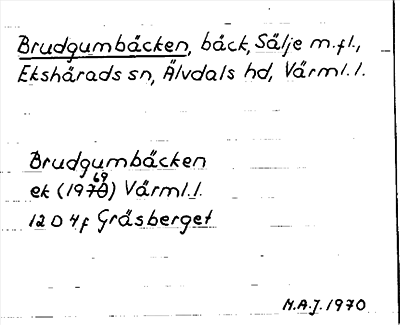 Brudgumbäcken, bäck, Sälje m.fl.,
Ekshärads sn, Älvdals hd, Värml.l.
Brudgumbäcken
ek (1970) Värml.l.
69
12 D 4f Gräsberget
M.A.J. 1970